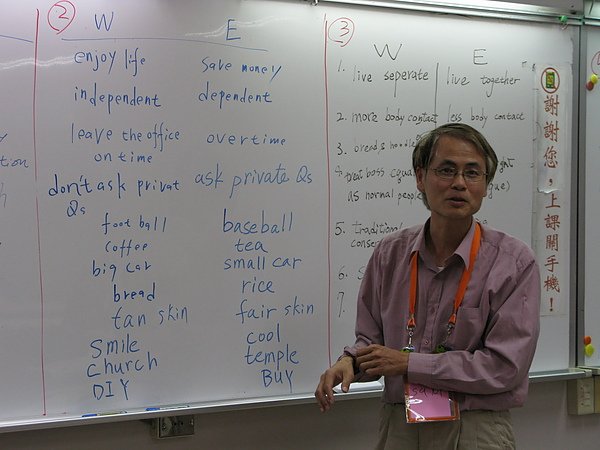 ②
W E
enjoy life save money
independent dependent
leave the office overtime
on time
don't ask privat ask private Qs
Qs
foot ball baseball
coffee tea
big car small car
bread rice
tan skin fair skin
smile cool
church temple
DIY BUY
③
W E
1. live seperate live together
2. more body contact less body contact
3. bread &
4. treat boss
as normal people
5.
6.
7.
謝謝您，上課關手機！